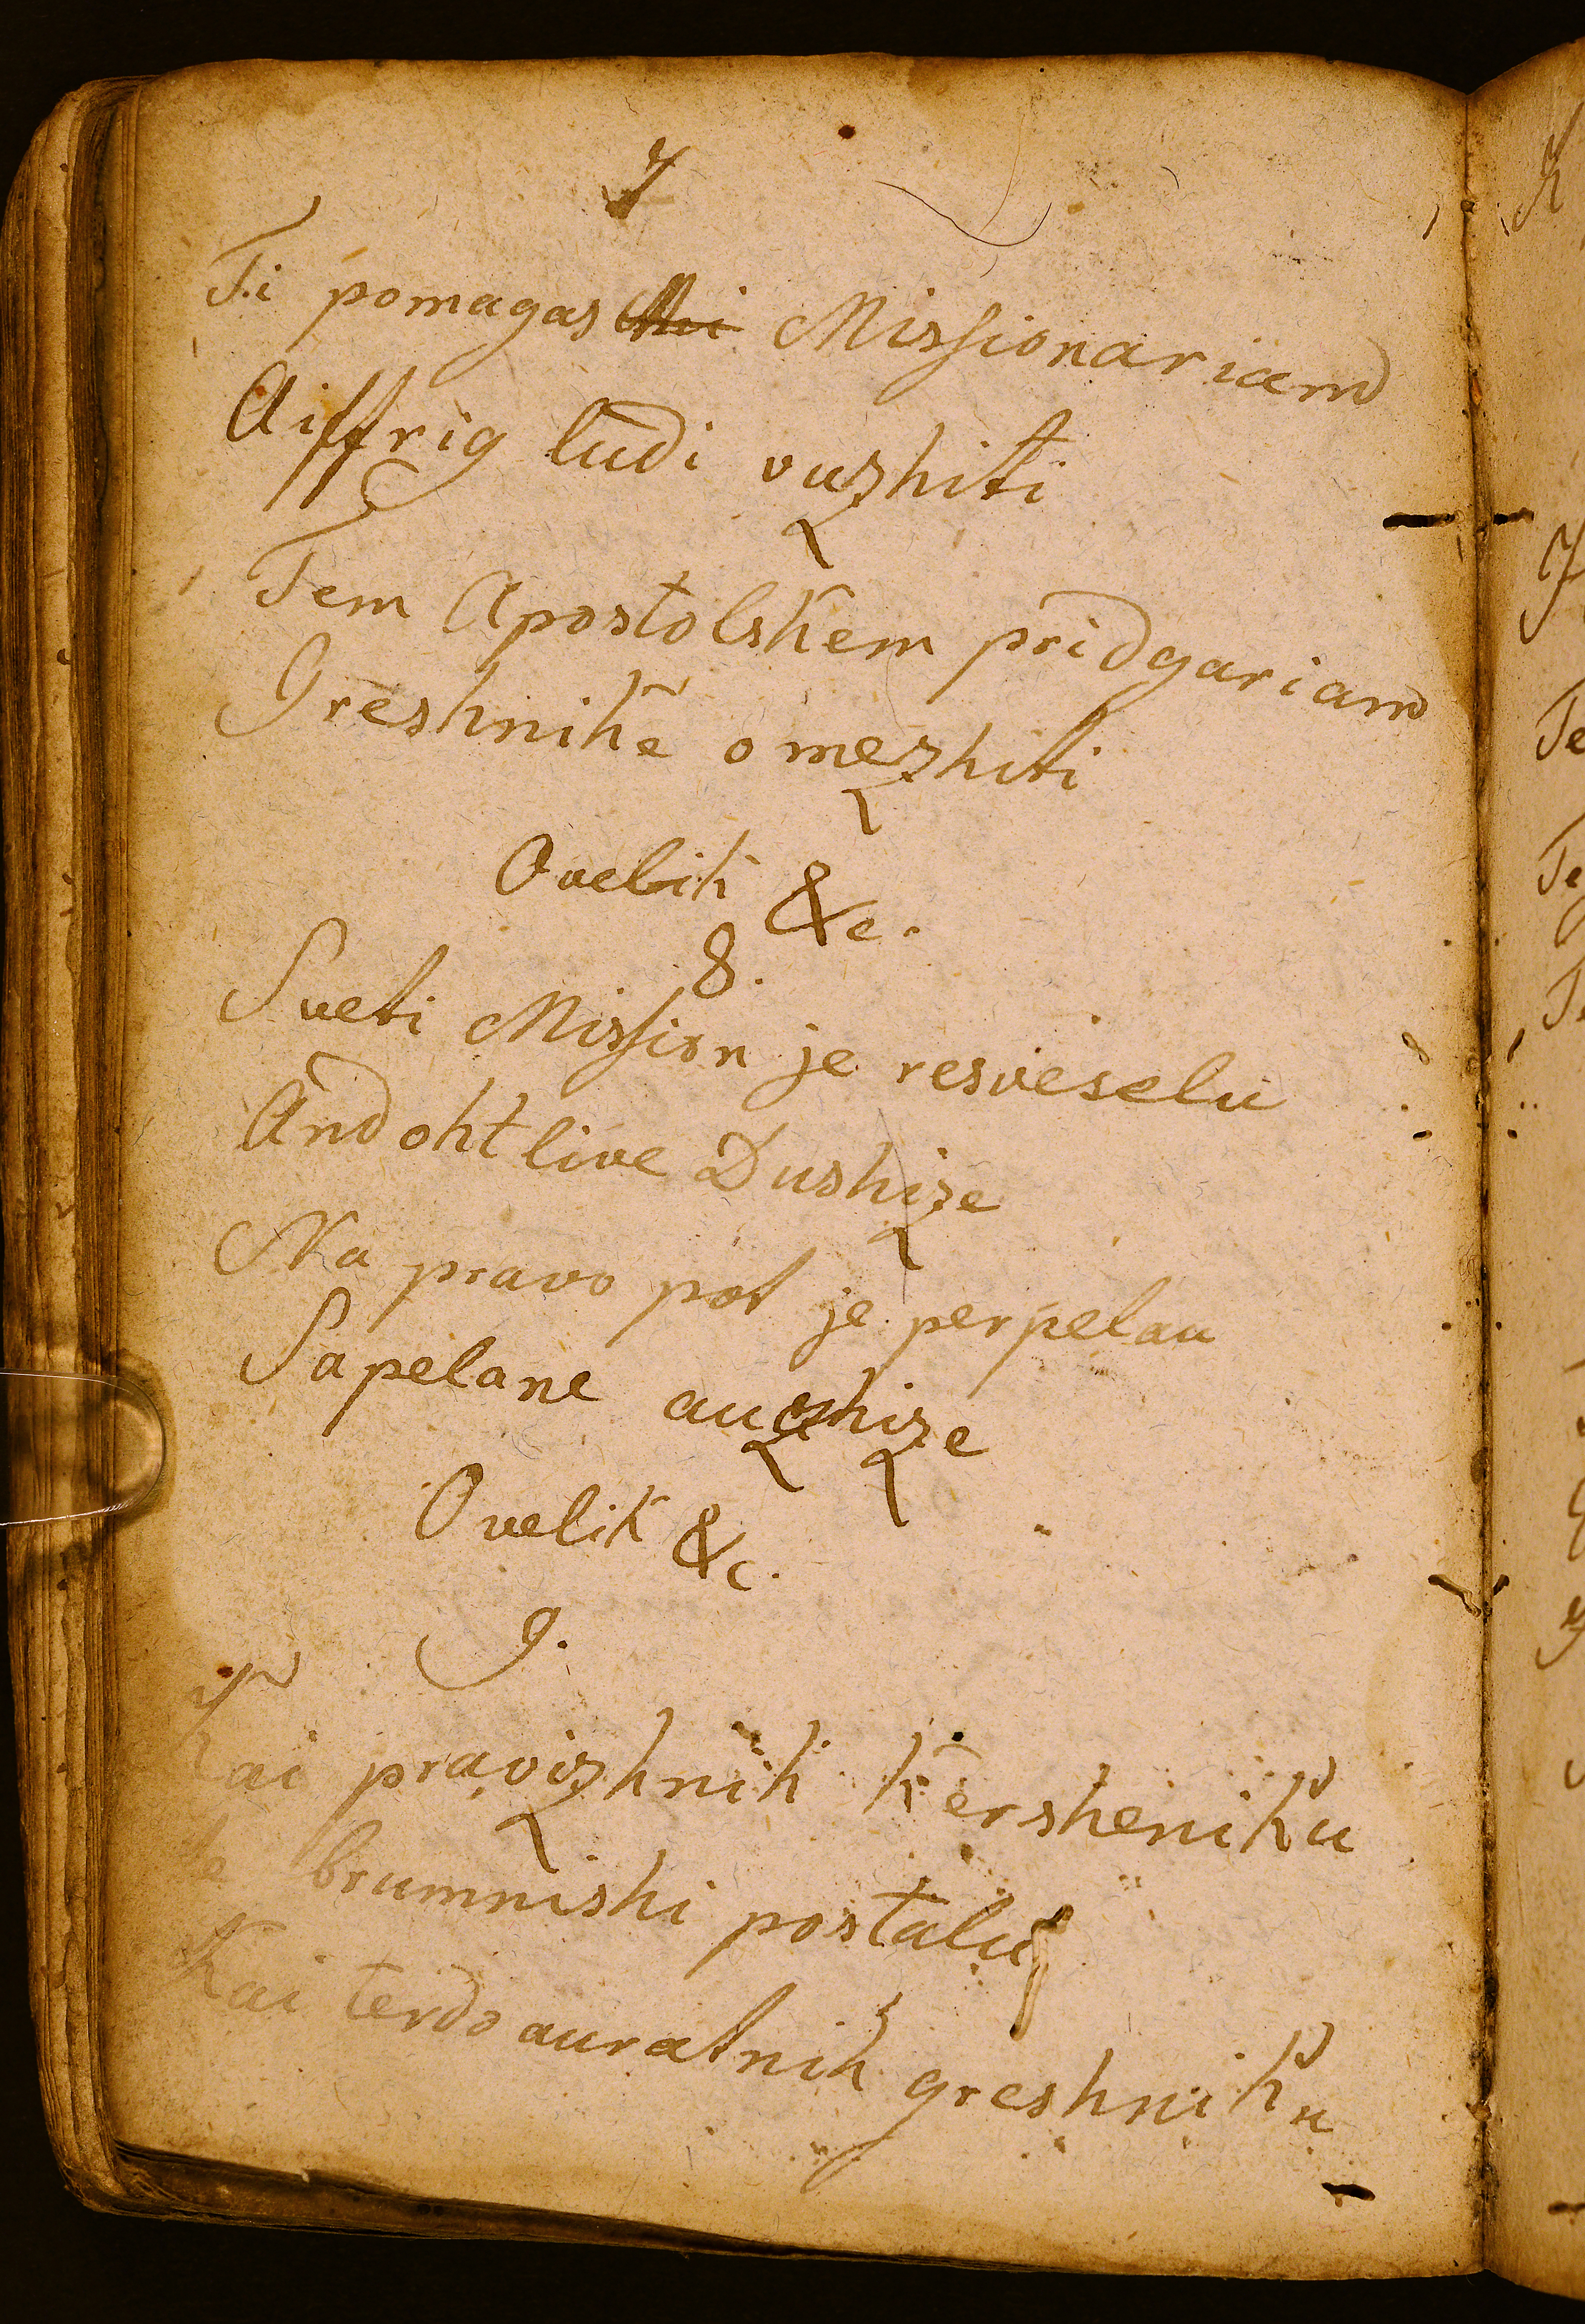 7
Ti pomagas Missionariam
Aiffrig ludi vuzhiti
Tem Apostolskem pridgariam
Greshnike omezhiti
Ovelik &c.
8.
Sveti Mission je resveselu
Andohtlive Dushize
Na pravo pot je perpelau
Sapelane auzhize
Ovelik &c.
9.
Kai pravizhnih kersheniku
Je brumnishi postalu
Kai terdoauratnih greshniku